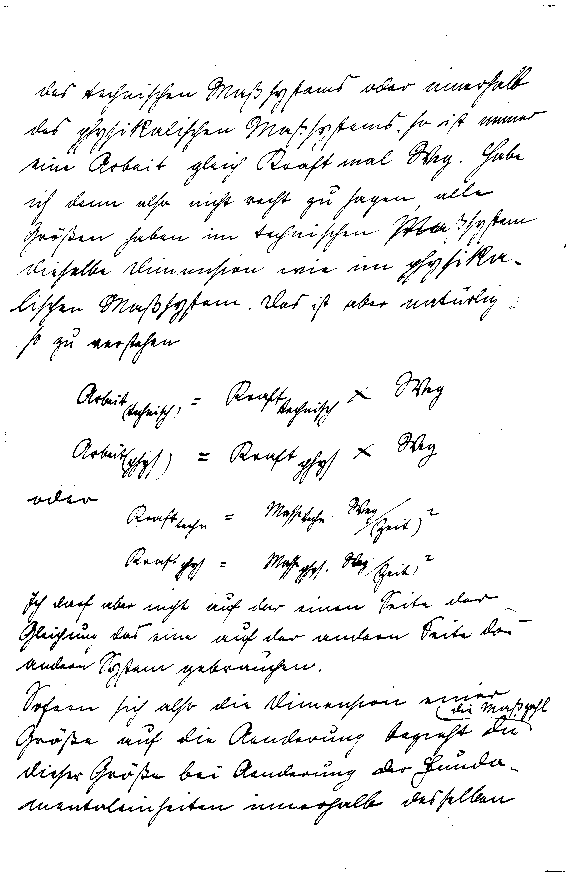 des technischen Maßsystems oder innerhalb
des physikalischen Maßsystems, so ist immer
eine Arbeit gleich Kraft mal Weg. Habe
ich denn also nicht recht zu sagen, alle
Größen haben im technischen Maßsystem
dieselbe Dimension wie im physika-
lischen Maßsystem. Das ist aber natürlich
so zu verstehen
Arbeit(technisch) = Kraft technisch × Weg
Arbeit(phys) = Kraft phys × Weg
oder
Kraft techn = Masse techn. Weg/(Zeit)²
Kraft phys = Masse phys. Weg/(Zeit)²
Ich darf aber nicht auf der einen Seite der
Gleichung das eine auf der andern Seite das
andere System gebrauchen.
Sofern sich also die Dimension einer
die Maßzahl
Größe auf die Aenderung bezieht die
dieser Größe bei Aenderung der Funda-
mentaleinheiten innerhalb desselben